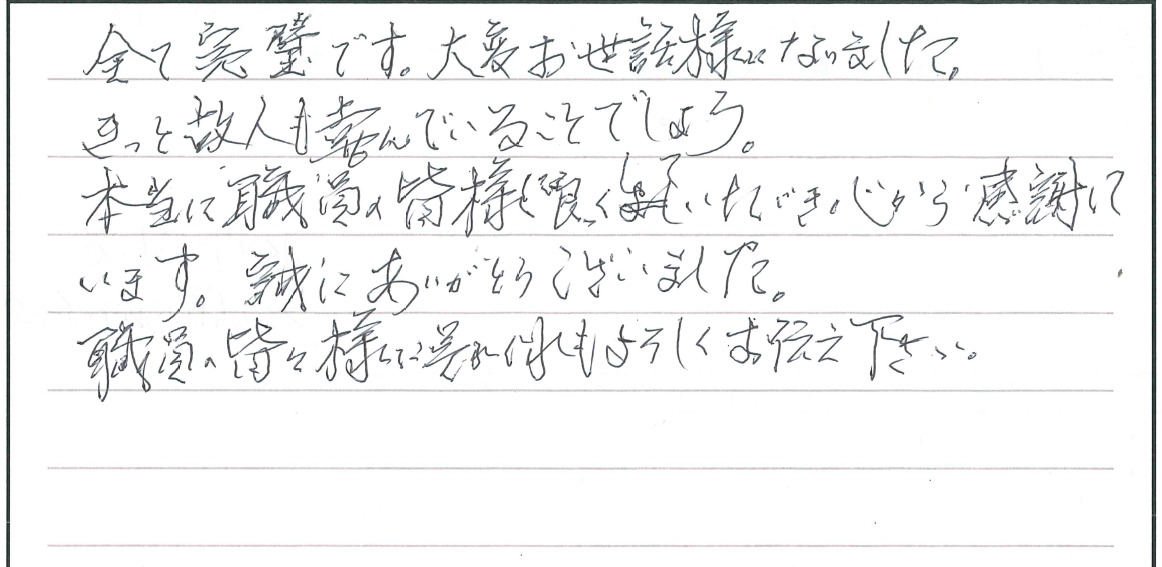 全て完璧です。大変お世話様になりました。
きっと故人も喜んでいることでしょう。
本当に職員の皆様も良くしていただき心から感謝して
います。誠にありがとうございました。
職員の皆々様に呉れ呉れもよろしくお伝え下さい。